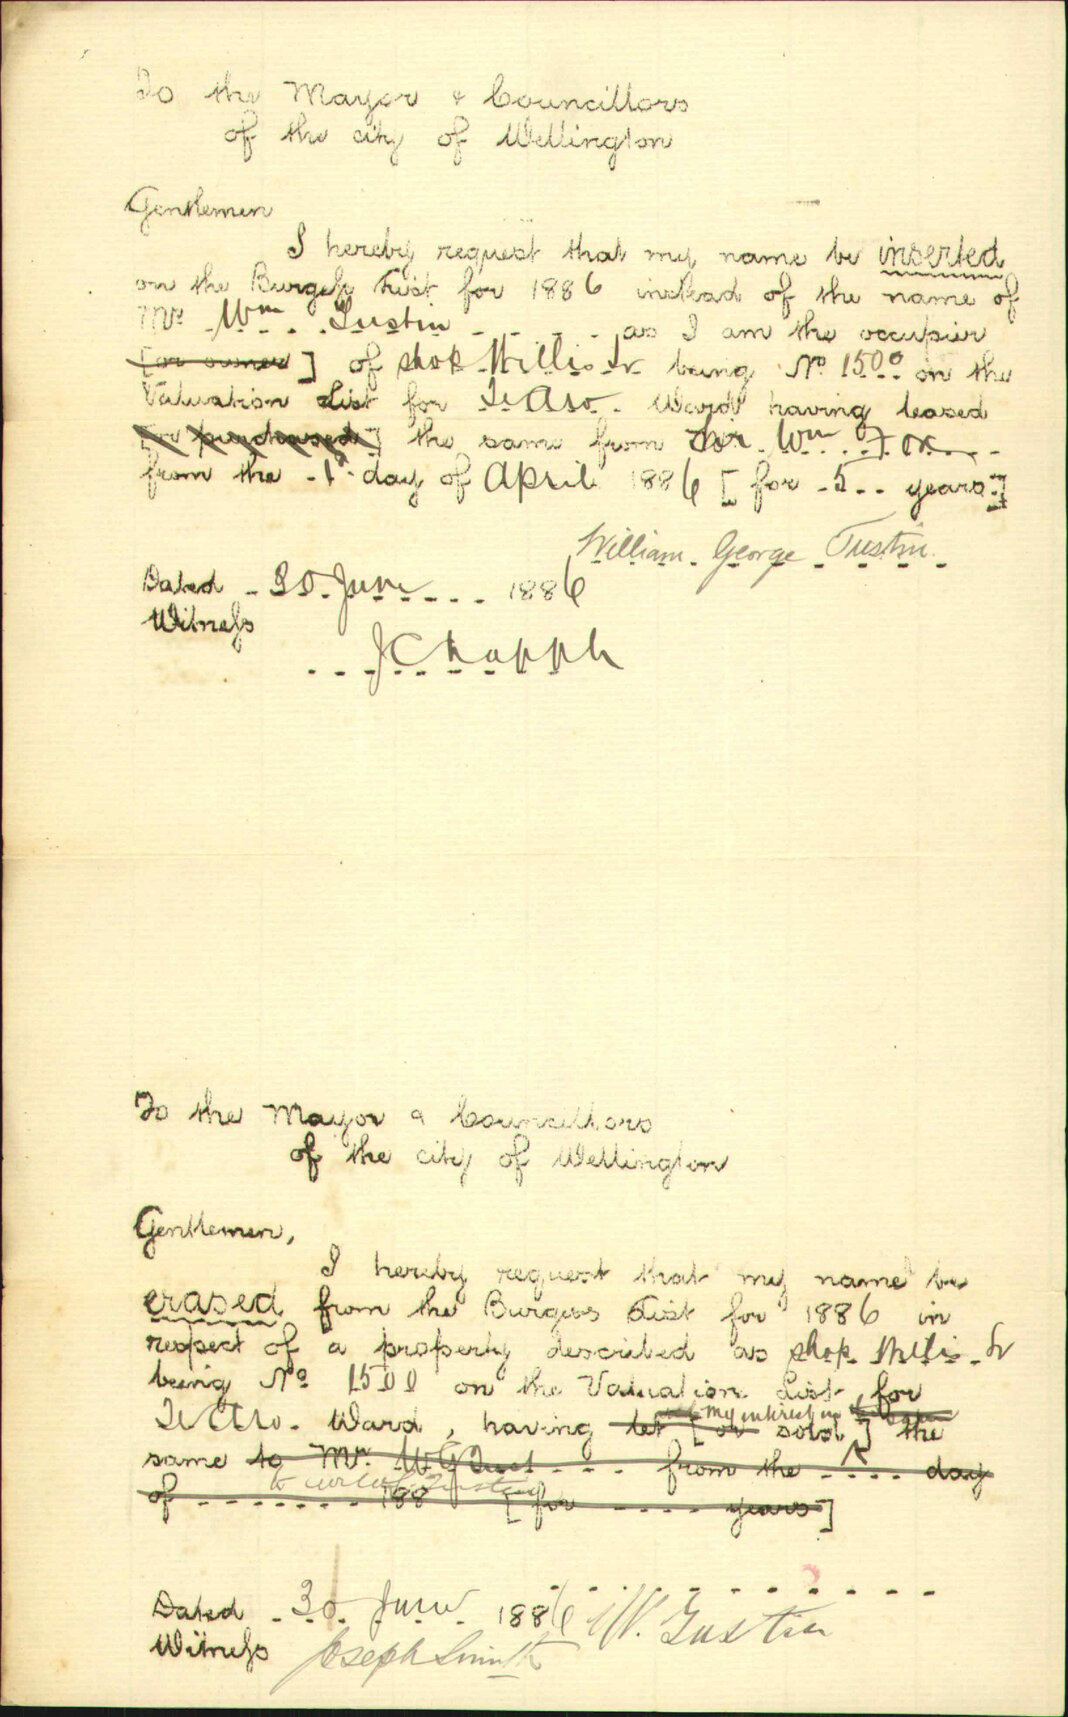 To the Mayor & Councillors
of the city of Wellington
Gentlemen
I hereby request that my name be inserted
on the Burgess List for 1886 instead of the name of
Mr Wm Tustin as I am the occupier
[or owner] of shop Willis St being No 1500 on the
Valuation List for Te Aro Ward having leased
[or purchased] the same from Sir Wm Fox
from the 1st day of April 1886 [for 5 years]
William George Tustin
Dated 30 June 1886
Witness
J Chapple
To the Mayor & Councillors
of the city of Wellington
Gentlemen,
I hereby request that my name be
erased from the Burgess List for 1886 in
respect of a property described as shop Willis St
being No 1500 on the Valuation List for
my interest in
Te Aro Ward, having let [or sold] the
same to Mr W G from the day
to Tustin
of 188 [for years]
Dated 30 June 1886 W. Tustin
Witness Joseph Smith